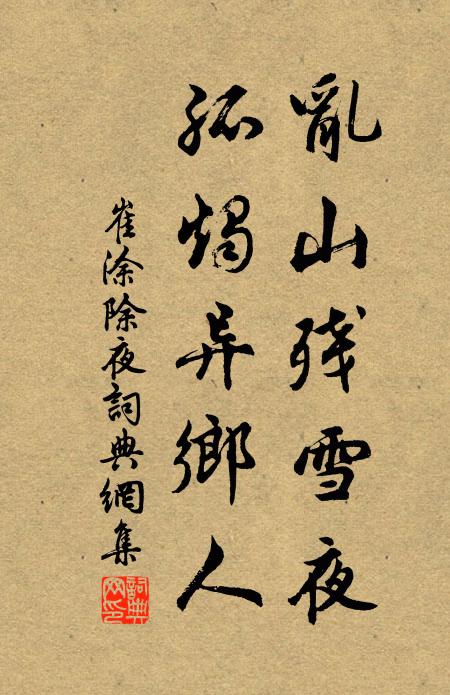 亂山殘雪夜
孤燭异鄉人
崔涂除夜詞典網集
詞典網印